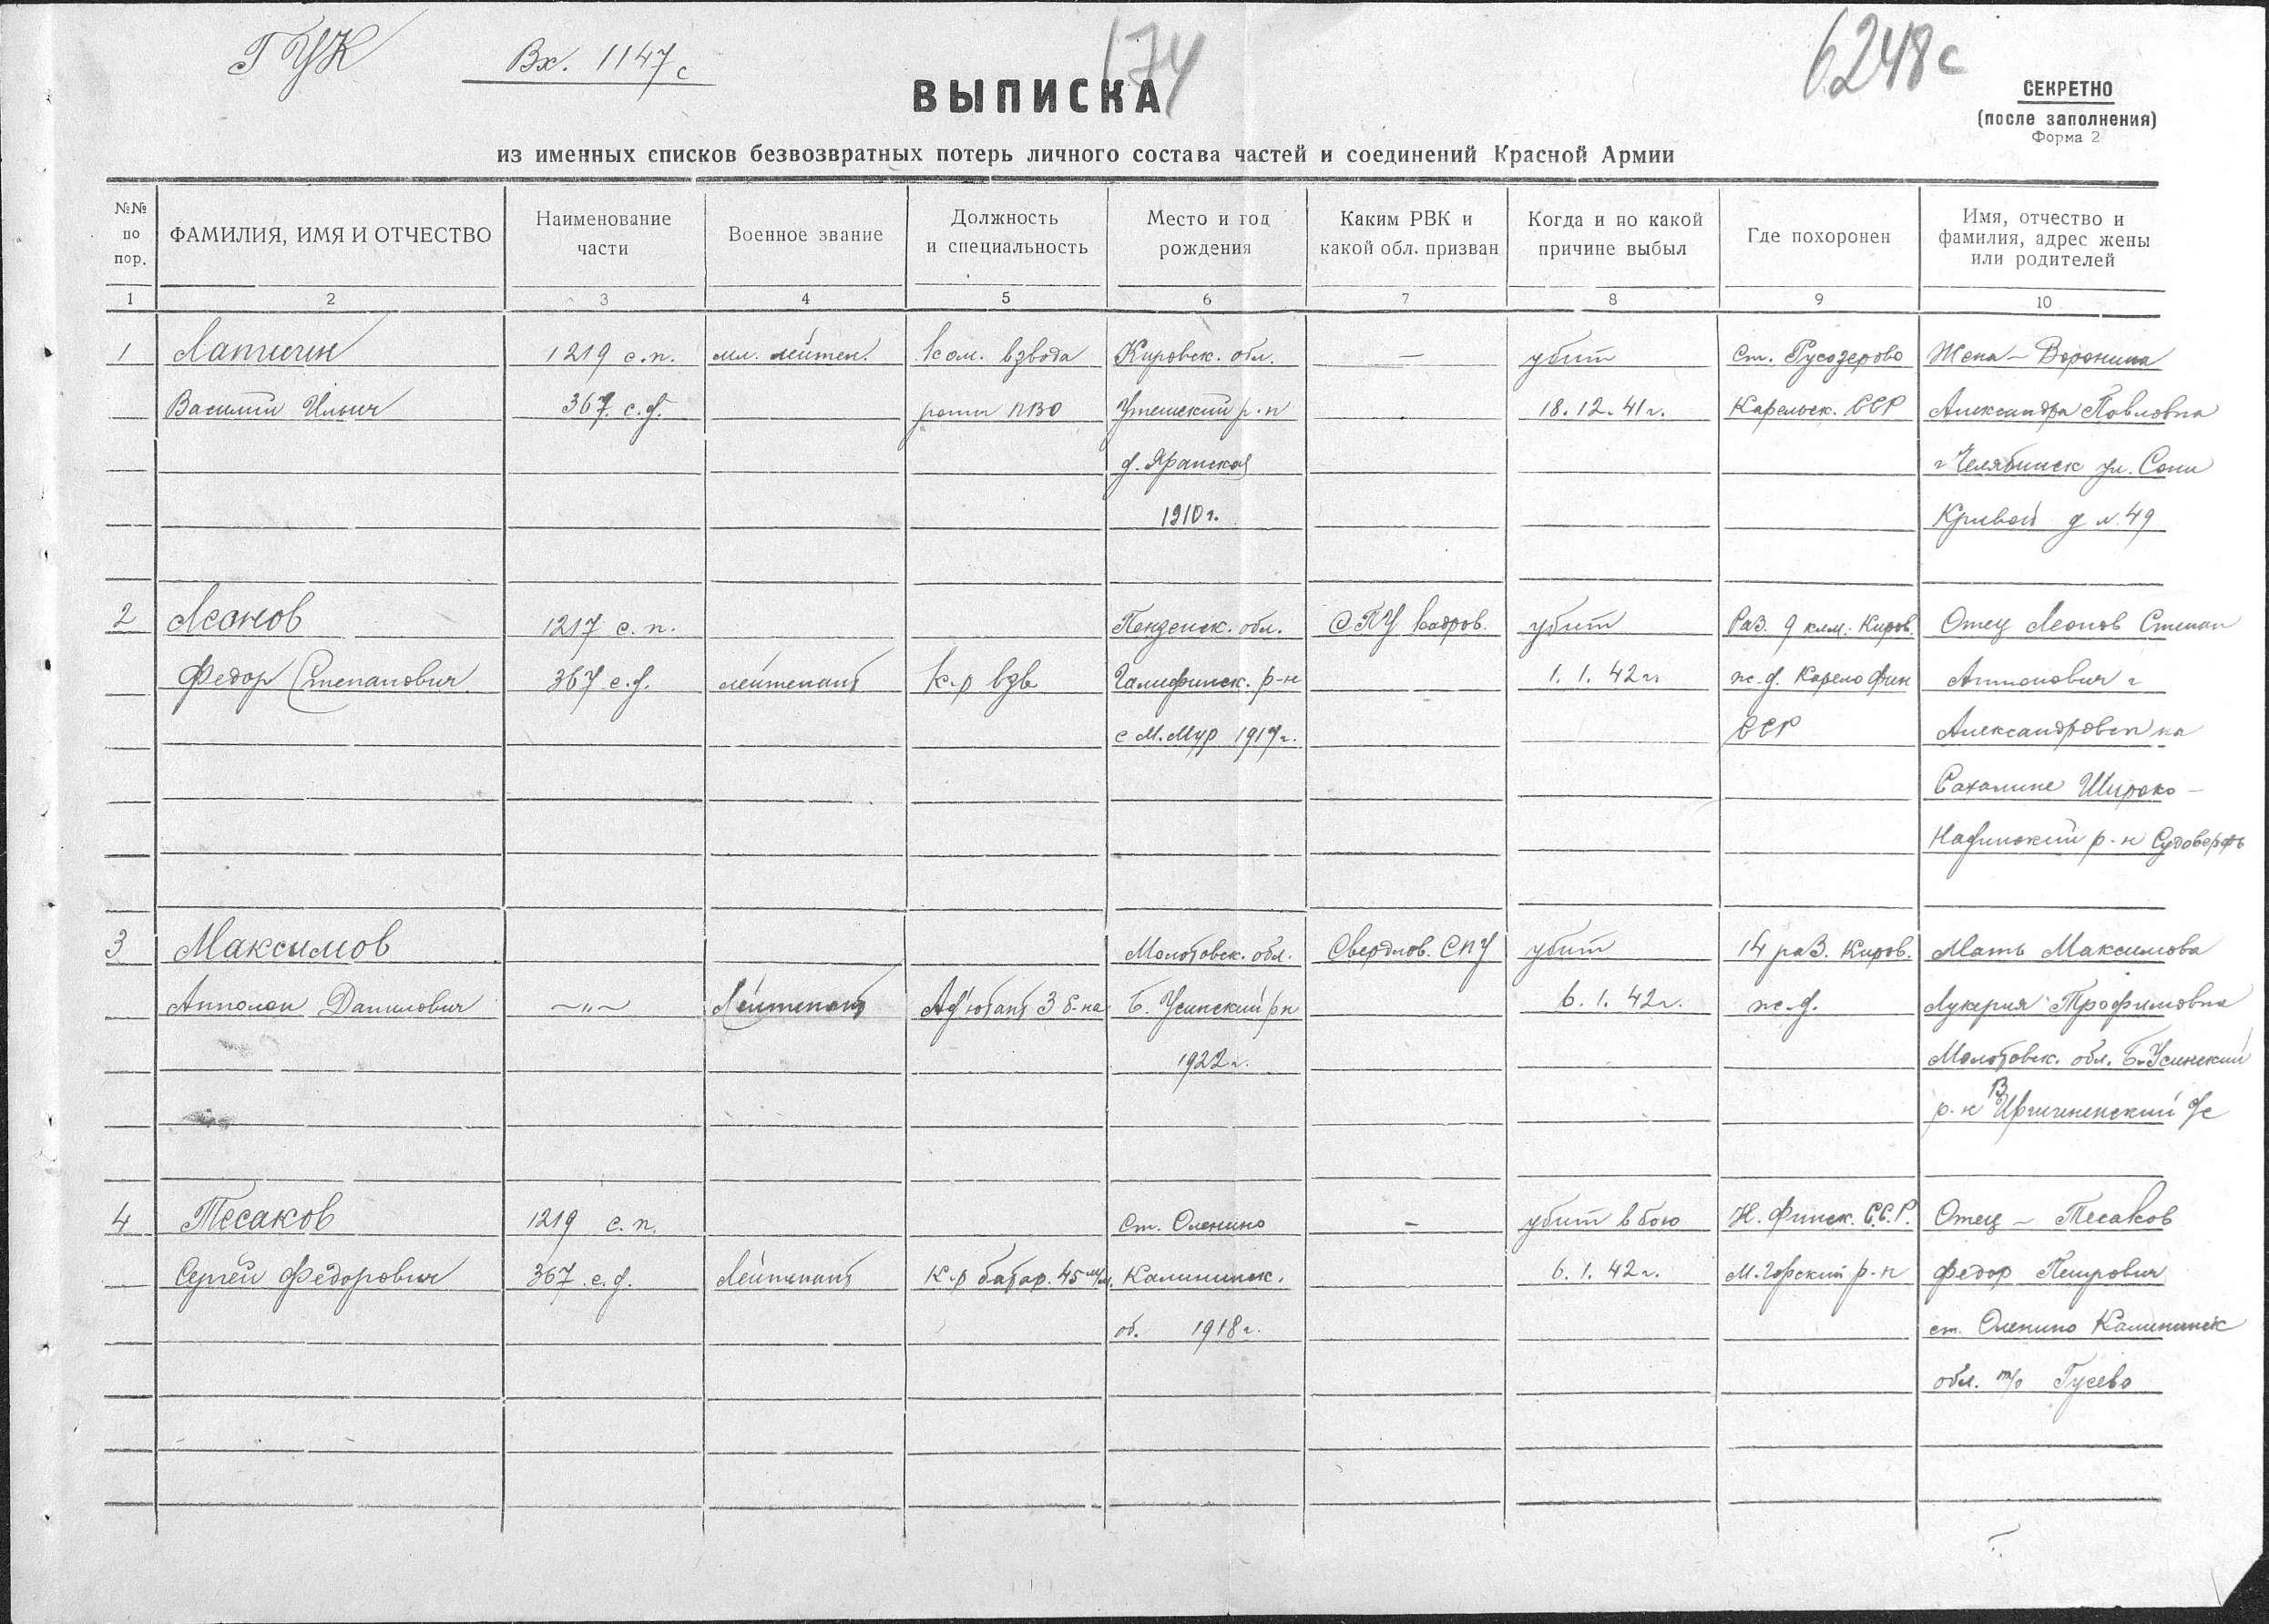 ГУК
Вх. 1147с
174
6248с
ВЫПИСКА
СЕКРЕТНО
(после заполнения)
Форма 2
из именных списков безвозвратных потерь личного состава частей и соединений Красной Армии
№№ по пор. ФАМИЛИЯ, ИМЯ И ОТЧЕСТВО Наименование части Военное звание Должность и специальность Место и год рождения Каким РВК и какой обл. призван Когда и по какой причине выбыл Где похоронен Имя, отчество и фамилия, адрес жены или родителей
1 2 3 4 5 6 7 8 9 10
1 Лапчичн 1219 с.п. мл. лейтен. Ком. взвода Кировск. обл. — убит Ст. Русозерово Жена – Воронина
Василий Ильич 367. с.д. роты ПВО р-н 18.12.41г. Карельск. ССР Александра Павловна
д. Яранская г Челябинск ул. Сони
1910г. Кривой д № 49
2 Леонов 1217 с.п. Пензенск. обл. ОПУ Кадров. убит Раз. 9 клм. Киров. Отец Леонов Степан
Федор Степанович 367 с.д. лейтенант К-р взв р-н 1.1.42г. ж.д. Карело Фин Антонович г
с М.Мур 1917г. ССР Александровск на
Сахалине Широко-
р-н Судоверфь
3 Максимов Молотовск. обл. Свердлов. СПУ убит 14 раз. Киров. Мать Максимова
Апполон Данилович —"— Лейтенант Ад'ютант 3 б-на Б. Усинский р-н 6.1.42г. ж.д. Лукерия Трофимовна
1922г. Молотовск. обл. Б-Усинский
р-н с/с
4 Тесаков 1219 с.п. Ст. Оленино – убит в бою К. Финск. С.С.Р. Отец – Тесаков
Сергей Федорович 367 с.д. Лейтенант К-р батар. 45 м/м. Калининск. 6.1.42г. М.Горский р-н Федор Петрович
об. 1918г. ст. Оленино Калининск
обл. п/о Гусево